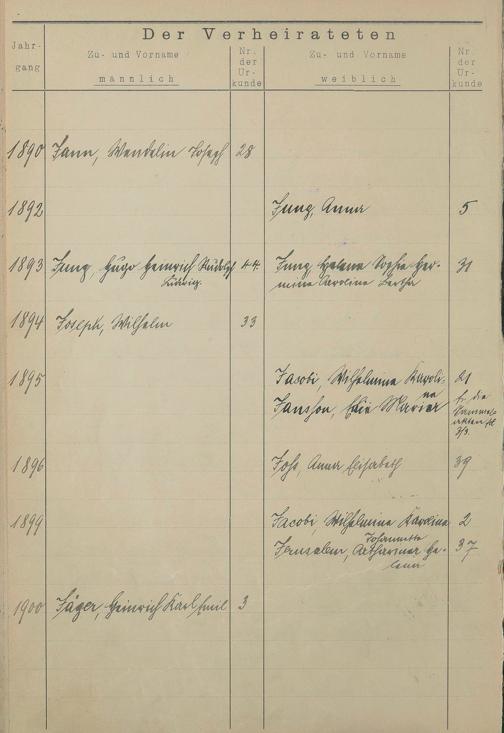 Der Verheirateten
Jahr-
gang
Zu- und Vorname
männlich
Nr.
der
Ur-
kunde
Zu- und Vorname
weiblich
Nr.
der
Ur-
kunde
1890 Jann, Wendelin Joseph 28
1892 Jung, Anna 5
1893 Jung, Hugo Heinrich Rudolph 44. Jung, Helene Sophie Her- 31
Ludwig. mine Caroline Bertha
1894 Joseph, Wilhelm 33
1895 Jacobi, Wilhelmine Karoli- 21
ne
Marie
1896 Anna Elisabeth 39
1899 Jacobi, Wilhelmine Karoline 2
Johannette
Jerusalem, Catharine He- 37
lene
1900 Jäger, Heinrich Karl Emil 3